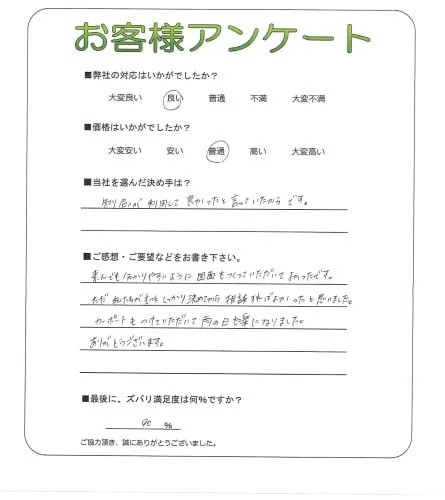 お客様アンケート
■弊社の対応はいかがでしたか？
大変良い 良い 普通 不満 大変不満
■価格はいかがでしたか？
大変安い 安い 普通 高い 大変高い
■当社を選んだ決め手は？
知り合いが利用して良かったと言っていたからです。
■ご感想・ご要望などをお書き下さい。
素人でも分かりやすいように図面もつくっていただいてよかったです。
ただ私たちがもっとしっかり決めてから相談すればよかったと思いました。
カーポートもつけていただいて雨の日も楽になりました。
ありがとうございます。
■最後に、ズバリ満足度は何％ですか？
90 %
ご協力頂き、誠にありがとうございました。